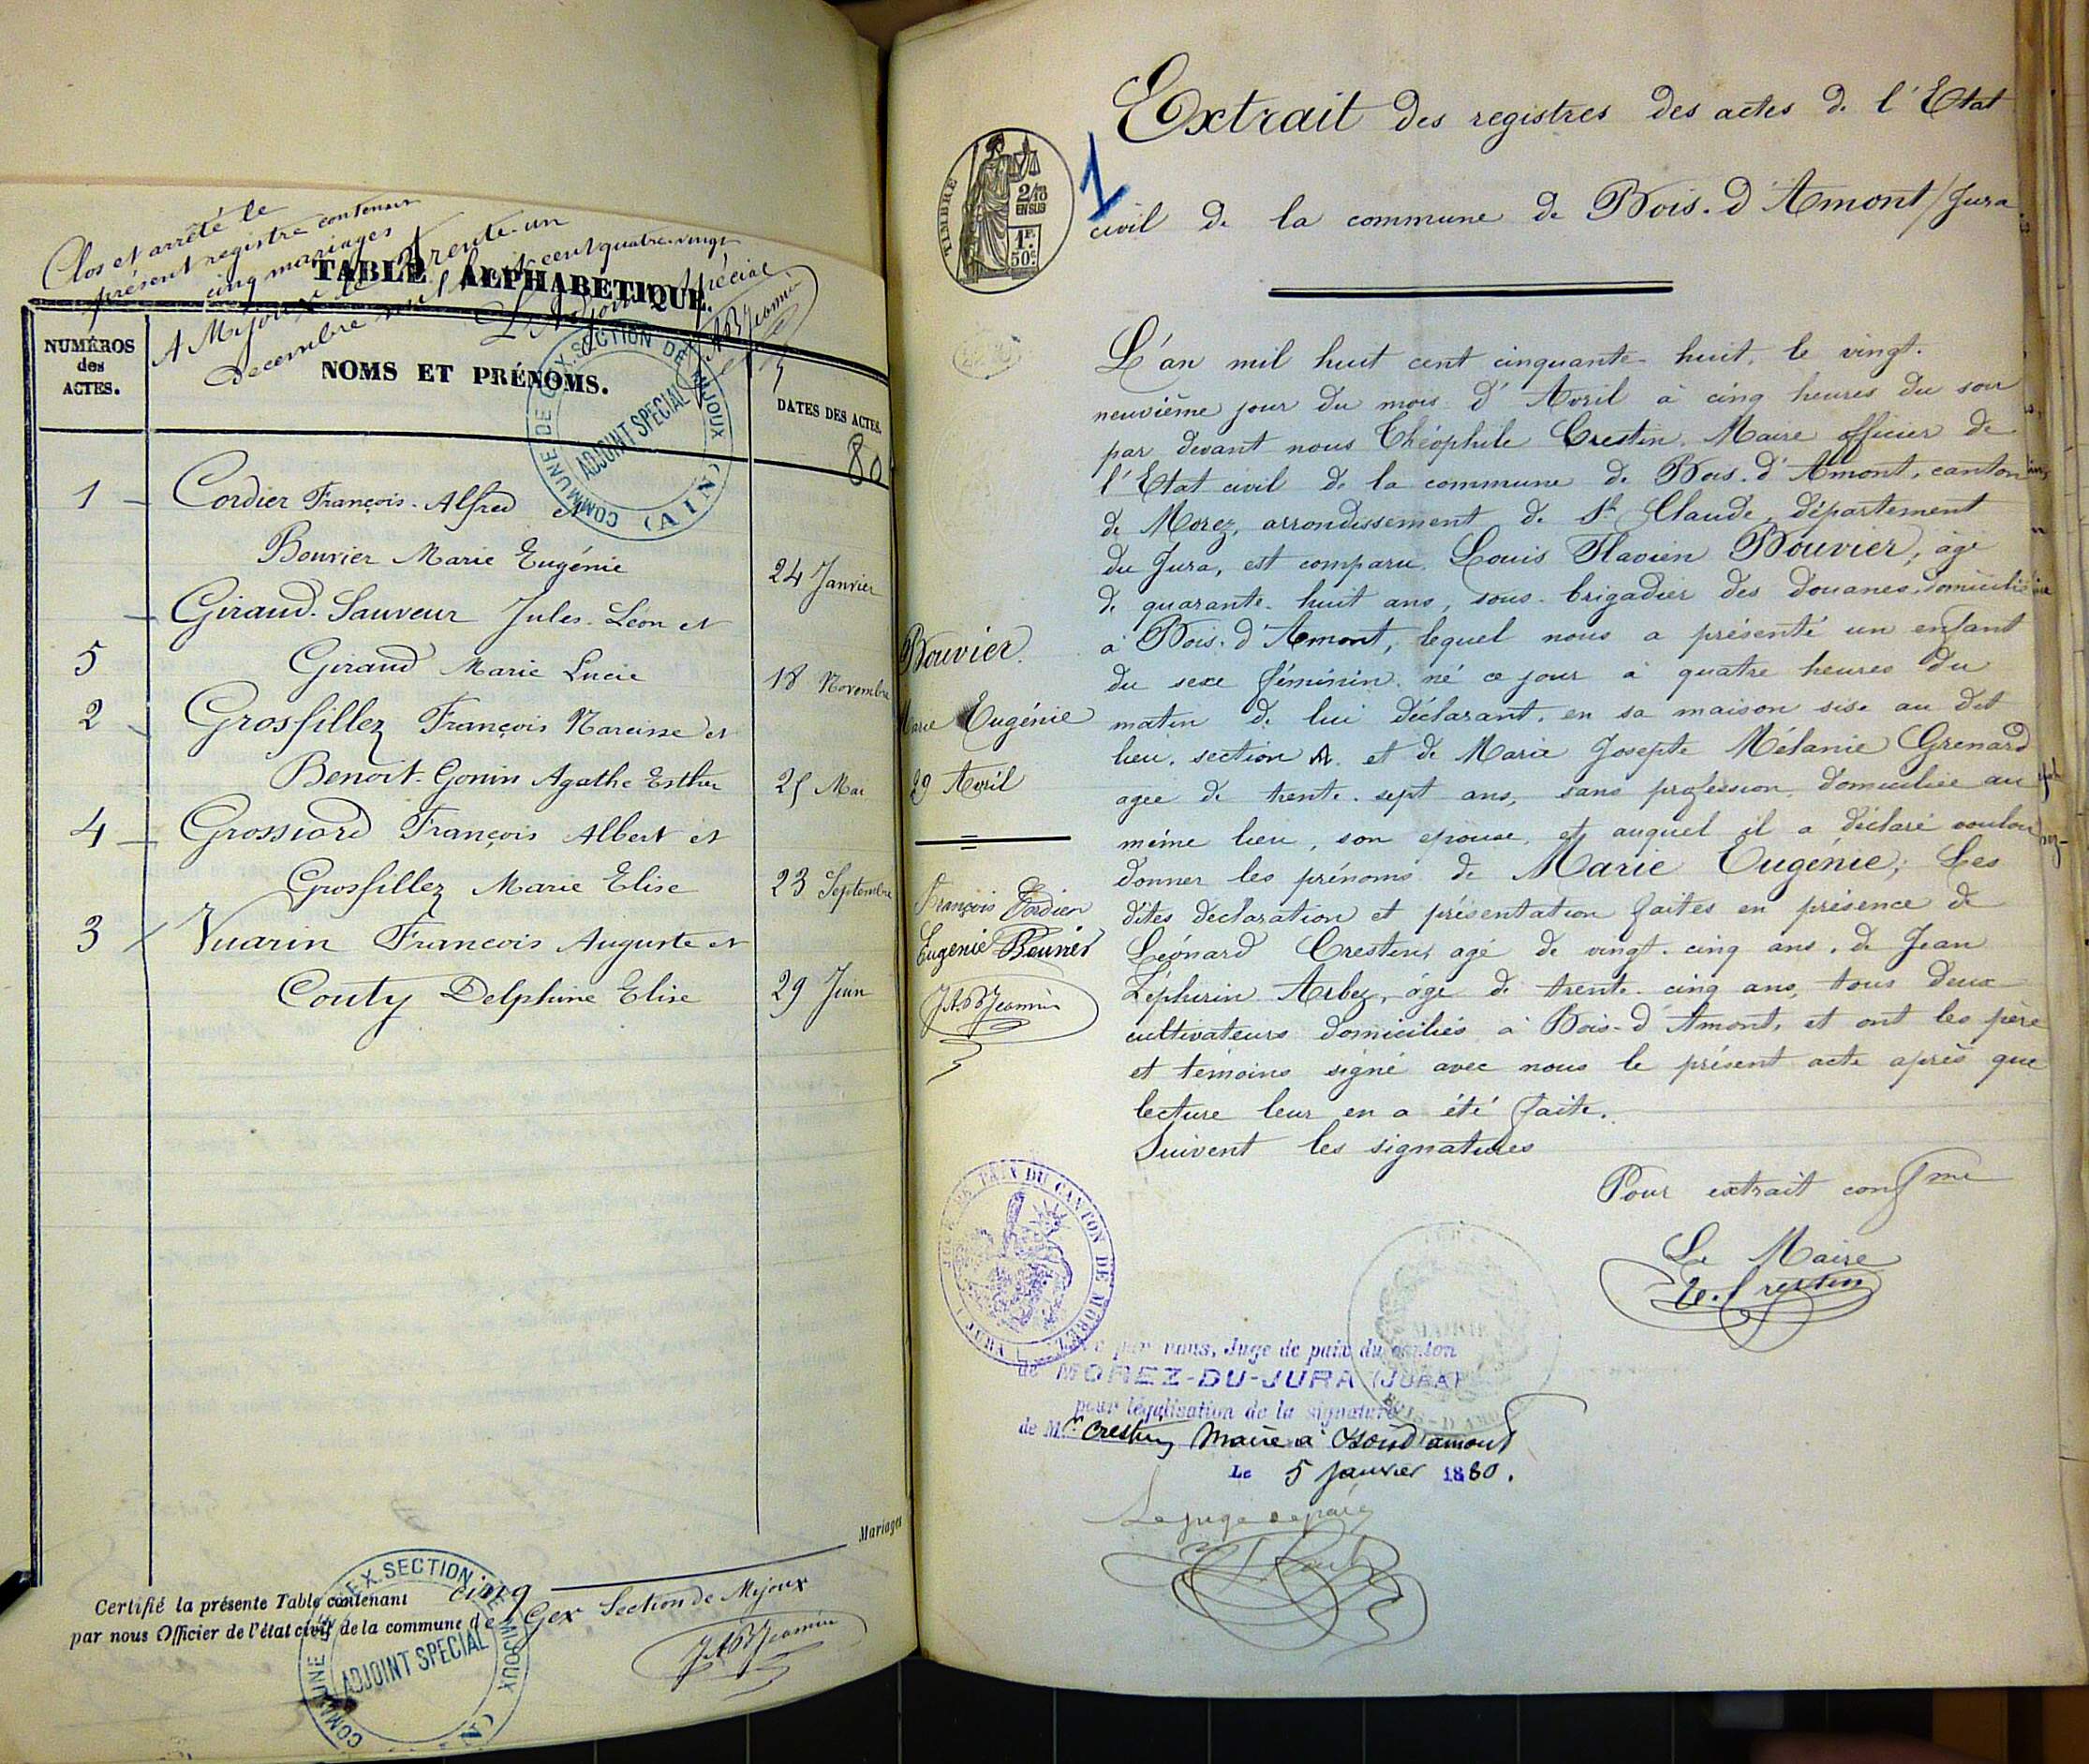 Clos et arrêté le
présent registre contenant
cinq mariages
A Mijoux le trente-un
Décembre mil huit cent quatre-vingt
L'Adjoint Spécial
TABLE ALPHABÉTIQUE.
NUMÉROS
des
ACTES.
NOMS ET PRÉNOMS.
DATES DES ACTES.
80
COMMUNE DE GEX. SECTION DE MIJOUX (AIN)
ADJOINT SPECIAL
1 Cordier François-Alfred et
Bouvier Marie Eugénie 24 Janvier
Giraud-Sauveur Jules-Léon et
5 Giraud Marie Lucie 18 Novembre
2 Grosfillez François Narcisse et
Benoit-Gonin Agathe Esther 25 Mai
4 Grossiord François Albert et
Grosfillez Marie Elise 23 Septembre
3 Vuarin François Auguste et
Couty Delphine Elise 29 Juin
Mariages
Certifié la présente Table contenant cinq
par nous Officier de l'état civil de la commune de Gex Section de Mijoux
COMMUNE DE GEX. SECTION DE MIJOUX
ADJOINT SPECIAL
TIMBRE
2/10
EN SUS
1F.
50c.
1
Extrait des registres des actes de l'Etat
civil de la commune de Bois-d'Amont/Jura
L'an mil huit cent cinquante-huit, le vingt-
neuvième jour du mois d'Avril à cinq heures du soir
par devant nous Théophile Crestin, Maire officier de
l'Etat civil de la commune de Bois-d'Amont, canton
de Morez, arrondissement de St Claude, département
du Jura, est comparu Louis Flavien Bouvier, âgé
de quarante-huit ans, sous-brigadier des douanes, domicilié
à Bois-d'Amont, lequel nous a présenté un enfant
du sexe féminin né ce jour à quatre heures du
matin de lui déclarant, en sa maison sise au dit
lieu, section A. et de Marie Josepte Mélanie Grenard
agée de trente-sept ans, sans profession, domiciliée au
même lieu, son épouse, et auquel il a déclaré vouloir
donner les prénoms de Marie Eugénie; Les
dites déclaration et présentation faites en présence de
Léonard Crestin, agé de vingt-cinq ans, de Jean
Zéphirin Arbez, âgé de trente-cinq ans, tous deux
cultivateurs domiciliés à Bois-d'Amont, et ont les père
et témoins signé avec nous le présent acte après que
lecture leur en a été faite.
Suivent les signatures
Bouvier
Marie Eugénie
29 Avril
François Cordier
Eugénie Bouvier
Pour extrait confme
Le Maire
Crestin
JUSTICE DE PAIX DU CANTON DE MOREZ (JURA)
MAIRIE
BOIS-D'AMONT
Vu par nous, Juge de paix du canton
de MOREZ-DU-JURA (JURA)
pour légalisation de la signature
de Mr Crestin, Maire à Bois d'amont
Le 5 Janvier 1880.
Le juge de paix